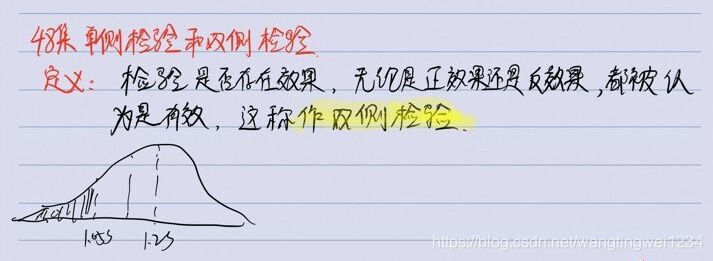 48集 单侧检验和双侧检验.
定义: 检验是否存在效果, 无论是正效果还是反效果, 都被认
为是有效, 这称作双侧检验.
1.05s 1.2s
https://blog.csdn.net/wangtingwei1234